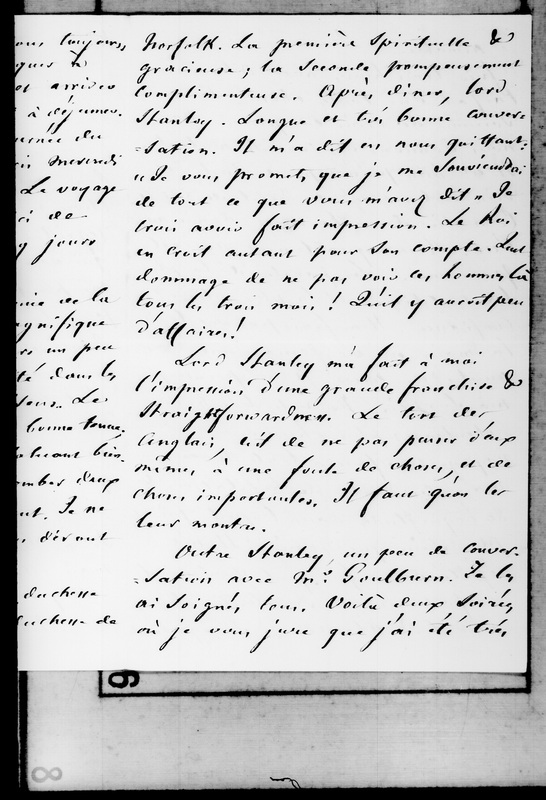 ous toujours,
quer à
et arriver
à déjeuner.
du
mercredi
Le voyage
ci de
jours
de la
agnifique
un peu
té dans les
Le
bonne tenue,
bien
deux
ut. Je ne
devant
duchesse
duchesse de
Norfolk. La première Spirituelle &
gracieuse; la seconde pompeusement
complimenteuse. Après diner, lord
Stanley. Longue et très bonne conver-
=sation. Il m'a dit en nous quittant:
« Je vous promets, que je me Souviendrai
de tout ce que vous m'avez dit » Je
crois avoir fait impression. Le Roi
en croit autant pour son compte. Quel
dommage de ne pas voir ces hommes là
tous les trois mois! Qu'il y auroit peu
d'affaires!
Lord Stanley m'a fait à moi
l'impression d'une grande franchise &
Straightforwardness. Le tort des
Anglais, c'est de ne pas penser d'eux
mêmes à une foule de choses, et de
choses importantes. Il faut qu'on les
leur montre.
Outre Stanley, un peu de conver-
=sation avec Mr. Goulburn. Je les
ai Soignés tous. Voilà deux Soirées
où je vous jure que j'ai été très
9
8